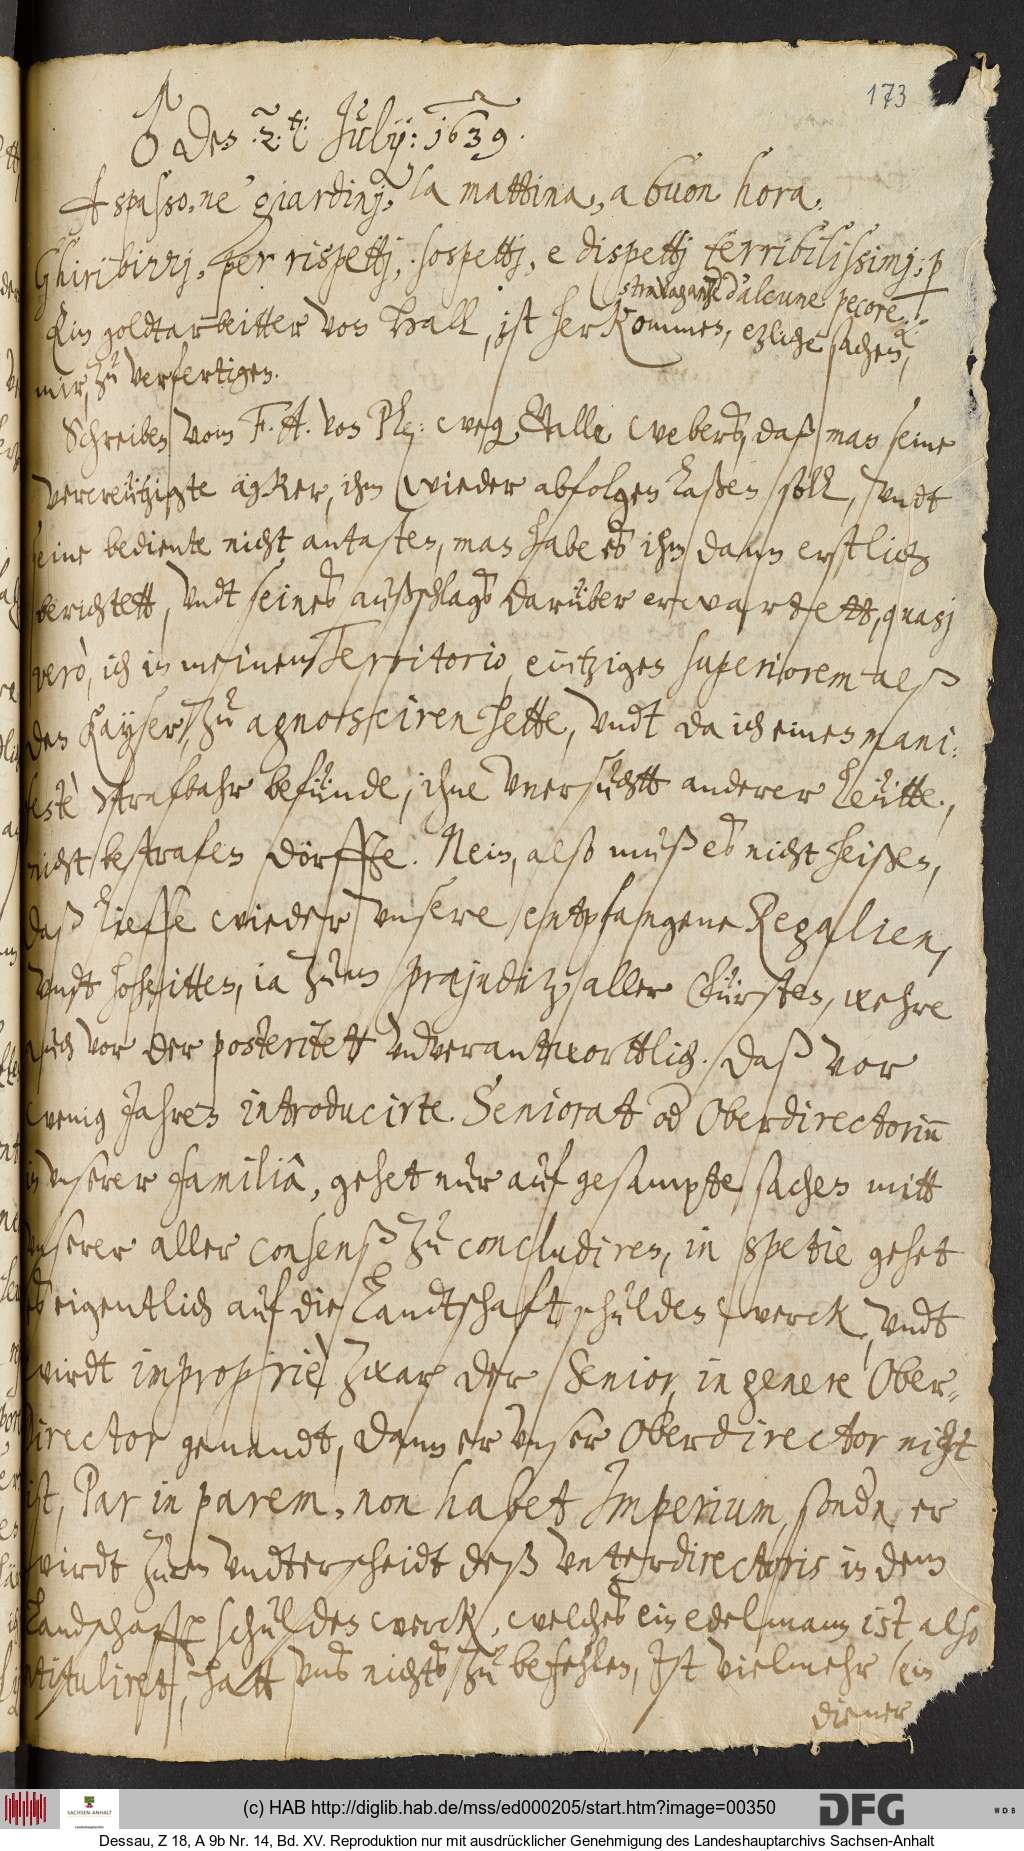 173
♂ den .2.ten: July: 1639.
A spasso, ne' giardinj, la mattina, a buon hora.
Ghiribizzj, per rispettj, sospettj, e dispettj terribilissimj, p
stravaganze d'alcune pecore.
Ein goldtarbeitter von Hall, ist herkommen, etzliche sachen,
mir, zu verfertigen.
Schreiben vom F. A. von Plz: weg Valle Webers, daß man seine
vercreützigte ägker, ihm wieder abfolgen laßen soll, vndt
seine bediente nicht antasten, man habe es ihm dann erstlich
berichtett, vndt seines außschlags darüber erwartett, quasj
verò, ich in meinem Territorio, eintzigen superiorem alß
den Kayser, zu agnosciren hette, vndt da ich einen mani-
festè strafbahr befünde, ihne vnersucht anderer leütte,
nicht bestrafen dörffte. Nein, also muß es nicht heißen,
daß lieffe wieder vnsere entpfangene Regalien,
vndt hoheitten, ia zum præjuditz aller Fürsten, wehre
auch vor der posteritett vnverantwortlich. Daß vor
wenig Jahren introducirte Seniorat od Oberdirectoriū
in vnserer familiâ, gehet nur auf gesampte sachen mitt
vnserer aller consenß zu concludiren, in spetie gehet
es eigentlich auf die Landtschaft schulden werck, vndt
wirdt impropriè zwar der Senior, in genere Ober-
director genandt, dann er vnser Oberdirector nicht
ist, Par in parem, non habet Imperium, sondn er
wirdt zum vndterscheidt deß vnterdirectoris in dem
Landschafft schulden werck, welches ein edelmann ist also
tituliret, hatt vns nichts zu befehlen, Ist vielmehr sein
diener
(c) HAB http://diglib.hab.de/mss/ed000205/start.htm?image=00350
SACHSEN-ANHALT
Landeshauptarchiv
DFG
WDB
Dessau, Z 18, A 9b Nr. 14, Bd. XV. Reproduktion nur mit ausdrücklicher Genehmigung des Landeshauptarchivs Sachsen-Anhalt